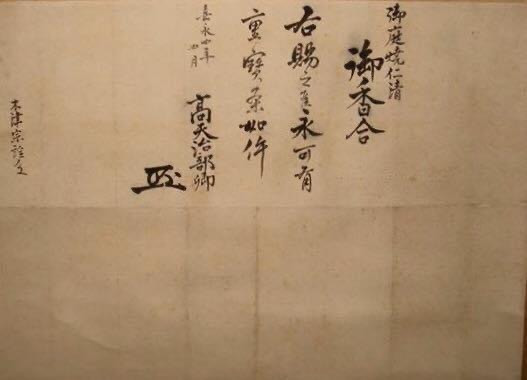 御庭焼仁清
御香合
右賜之畢永可有
重寶者如件
嘉永四年
四月
高天治部卿
木津宗詮